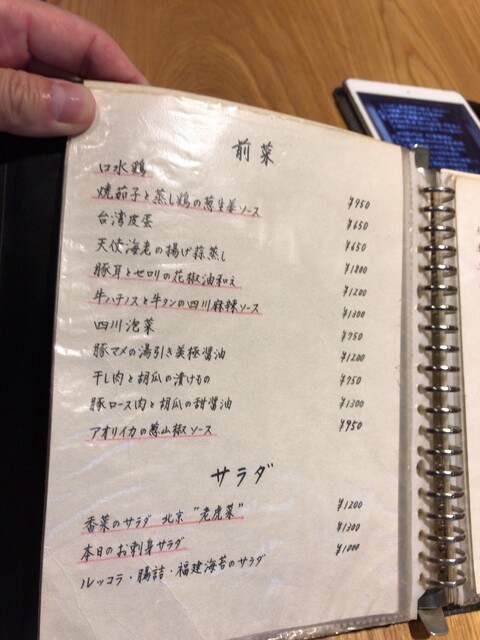 前菜
口水鶏 ¥950
焼茄子と蒸し鶏の葱生姜ソース ¥650
台湾皮蛋 ¥650
天使海老の揚げ蒜蒸し ¥1800
豚耳とセロリの花椒油和え ¥1200
牛ハチノスと牛タンの四川麻辣ソース ¥1300
四川泡菜 ¥750
豚マメの湯引き美極醤油 ¥1200
干し肉と胡瓜の漬けもの ¥750
豚ロース肉と胡瓜の甜醤油 ¥1300
アオリイカの葱山椒ソース ¥950
サラダ
香菜のサラダ 北京"老虎菜" ¥1200
本日のお刺身サラダ ¥1300
ルッコラ・腸詰・福建海苔のサラダ ¥1000